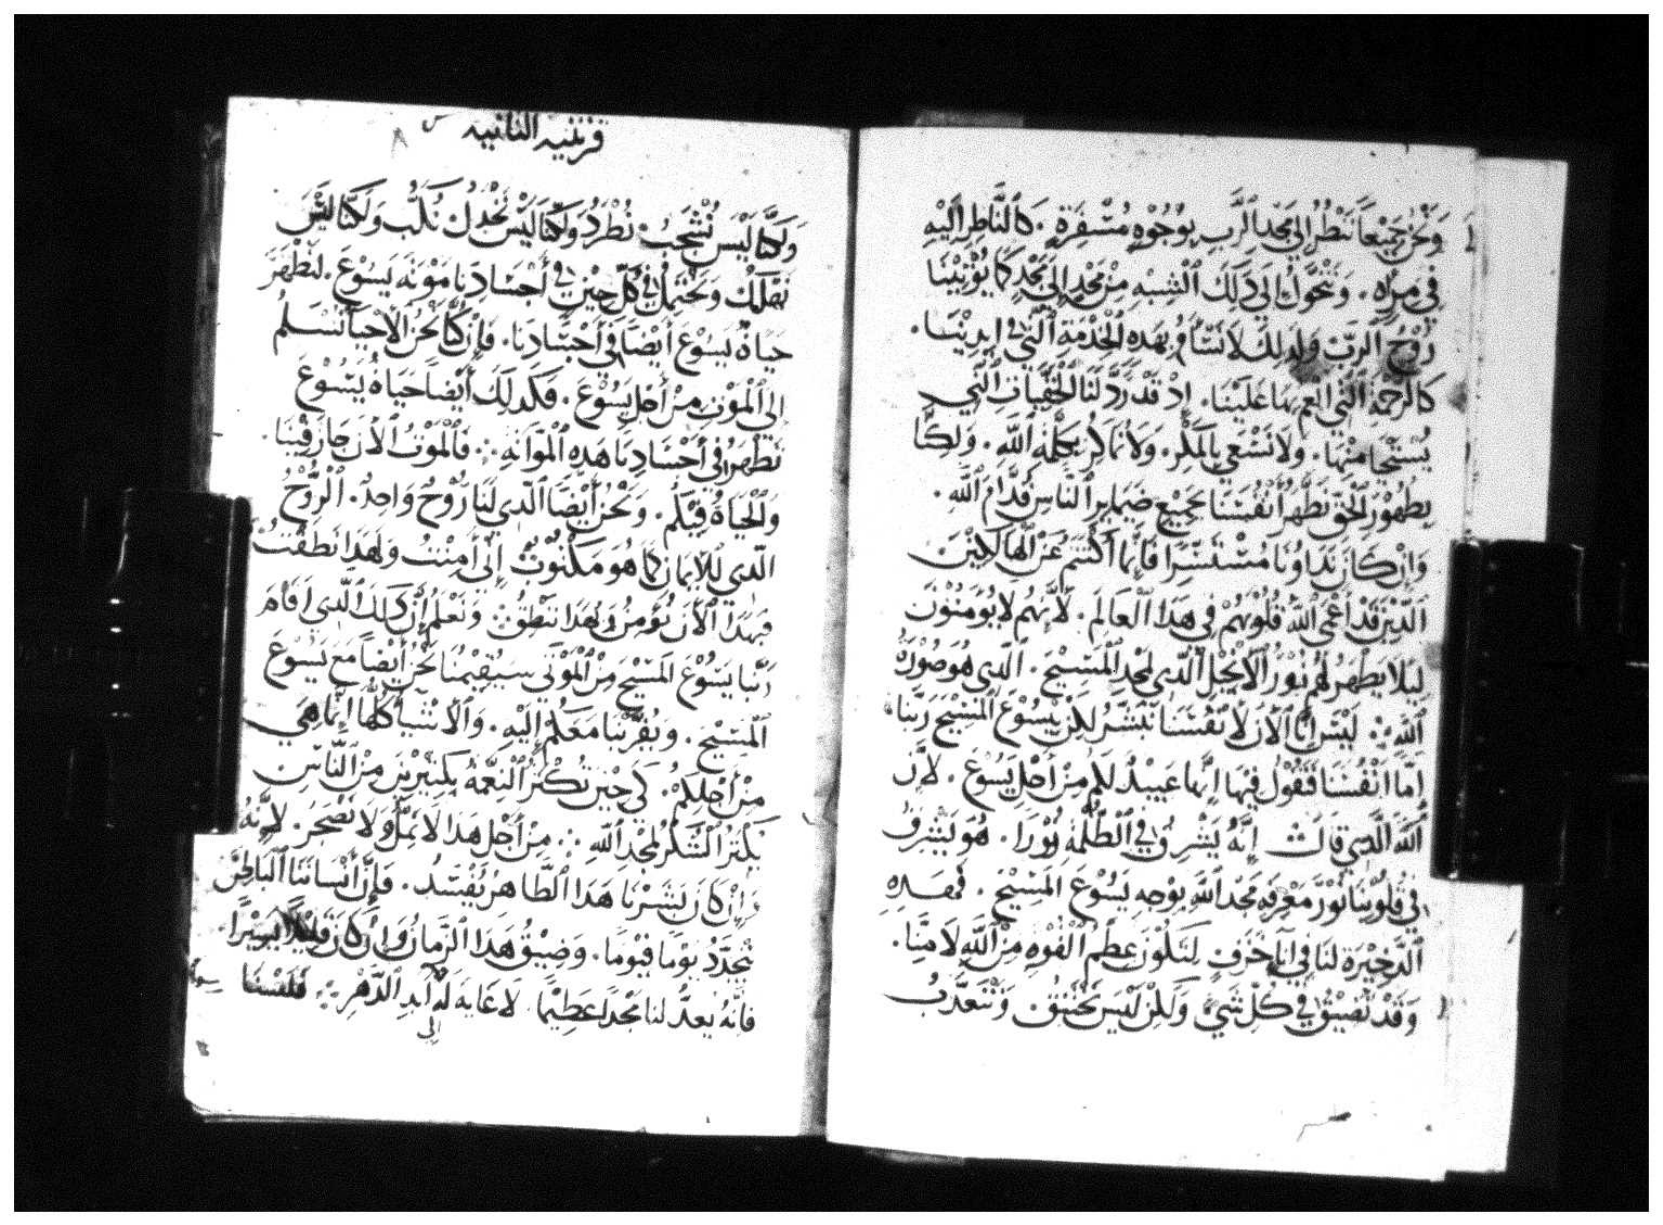 وَنَحْنُ جَمِيْعاً نَنْظُرُ إلى مَجْدِ الرَّبِ بِوُجُوْهٍ مُسْفِرَةٍ . كَالنَّاظِرِ إلَيْهِ
فِي مِرْاهٍ . وَنَتْحَوَّلُ إلي ذَلِكَ الشِبْهِ مِنْ مَجْدٍ إلي مَجْدٍ كَمَا يُؤْتِيْنَا
رُوْحُ الرَبِّ وَلِذلِكَ لا نَسْأَمُ بِهَدِهِ الْخِدْمَةِ الَّتِي فِي ايدِيْنَا .
كالرَحْمَةِ الَّتِي انعم بِهَا عَلَيْنَا . إدْ قَدْ رَدَّ لَنَا الْخَفِيَّاتِ الَّتِي
يُسْتَحْيا مِنْهَا . ولا نَسْعَي بِالْمَكْرِ . وَلا نُمَاكِرُ بِكَلِمَةِ اللَّهِ . وَلَكِنَّا
بِظُهُوْرِ الْحَقِّ نُظْهِرُ أَنْفُسَنَا لجَمِيْعِ ضَمَايرِ النَّاسِ قُدَّامَ اللَّهِ .
وَإنْ كَانَ نَدَاوُنَا مُسْتَسِرًّا فَإِنَّما اكْتَتَمَ عَنْ الْهَالِكِيْنَ
الَّدِيْنَ قَدْ أَعْمَى اللَّهُ قُلُوْبَهُمْ فِي هَدَا الْعَالَمِ . لأَنَّهُم لا يُوَمِنُوْنَ
لِيَلا يَظْهَرَ لَهُمْ نُوْرُ الأنْجِيْلِ الَّدِي لِمَجْدِ الْمَسِيْحِ . الَّدِي هُوَ صُوْرَةُ
اللهِ ∴ لَيْسَ إنَّا الآنَ لأَنْفُسِنَا نُبَشِّرُ لكِنْ يَسُوْعَ الْمَسِيْحَ رَبَّنَا .
إمَّا أنْفُسَنَا فَنَقُوْلُ فِيْهَا إنَّهَا عَبِيْدٌ لَكُم مِنْ أجْلِ يَسُوْعَ . لأنَّ
اللَّهَ الَّدِي قَالَ إنَّهُ يَشْرِقُ فِي الظُّلْمَةِ نُوْرًا . هُوَ يَشْرِقُ
فِي قُلُوْبِنَا نُوْرَ مَعْرِفَةِ مَجْدِ اللَّهِ بِوَجْهِ يَسُوْعَ الْمَسِيْحِ . فَهَدِهِ
الدَّخِيْرَة لَنَا فِي آنآءِ خَزَفٍ لِتَكُوْنَ عِظَمُ الْقُوَّةِ مِنْ اللَّهِ لا مِنَّا .
وَقَدْ نُضَيَّقُ فِي كُلِّ شَيٍ وَلَكِنْ لَيْسَ نَخْتَنِقُ وَنَتَعَدَّبُ
قرنتيه الثانيه
وَلَكِنَّا لَيْسَ نُشْجَبُ نُطْرَدُ وَلَكِنَّا لَيْسَ نُخْدَلُ نُكَبُّ وَلَكِنَّا لَيْسَ
نَهْلَكُ وَنَحْتَمِلُ فِي كُلِّ حِيْنٍ فِي أجْسَادِنَا مَوْتَهَ يَسُوْعَ . لِتَظْهَرَ
حَيَاةُ يَسُوْعَ ايْضًا فِي أجْسَادِنَا . فَإنْ كُنَّا نَحْنُ الاحْيَآ نُسَلَّمُ
إلي الْمَوْتِ مِنْ أجْلِ يَسُوْعَ . فَكَدَلِكَ أيْضاً حَيَاةُ يَسُوْعَ
تَظْهَرُ فِي أَجْسَادِنَا هَدِهِ الْمَوَاتَةِ ∴ فَالْمَوْتُ الآنَ جَازَ فِيْنَا .
وَالْحَيَاةُ فِيْكُمْ . وَنَحْنُ أيْضًا الَّدِي لَنَا رُوْحٌ وَاحِدٌ . الرُّوْحُ
الَّدِي لِلاِيْمَانِ كَمَا هُوَ مَكْتُوْبٌ إنِّي أمِنْتُ وَلِهَدَا نَطَقْتُ
فَبِهَدَا الآنَ نُؤْمِنُ وَلِهَدَا نَنْطِقُ ∴ وَنَعْلَمُ إنَّ دَلِكَ الَّدِي اقَامَ
رَبَّنا يَسُوْعَ الْمَسِيْحَ مِنْ الْمَوْتَي سَيُقِيْمُنَا نَحْنُ أيْضاً مَعَ يَسُوْعَ
الْمَسِيْحِ . وَيُقَرِّبُنَا مَعَكُمْ إلَيْهِ . وَالاشْيَآ كُلُّهَا إنَّمَا هِيَ
مِنْ أجْلِكُمْ . كَي حِيْنَ تَكْثُرُ النِعْمَةُ بِكَثِيْرِيْنَ مِنْ النَّاسِ
يَكْثُرُ الشُكْرُ لِمَجْدِ اللَّهِ ∴ مِنْ أجْلِ هَدَا لا نَمَلُّ وَلا نَضْجَرُ . لأِنَّهُ
وَإنْ كَانَ بَشَرُنَا هَدَا الظَّاهِرُ يُفْسَدُ . فَإنَّ أنْسَانَنَا الْبَاطِنَ
يَتَجَدَّدُ يَوْمًا فَيَوْمًا . وَضِيْقُ هَدَا الزَمَانِ وَإنْ كَانَ قَلِيْلاً يَسِيْرًا
فَانَّهُ يعدُّ لَنَا مَجْداً عَظِيْمًا . لا غَايَةَ لَهُ إلى أبَدِ الدَّهْرِ ∴ فَلَسْنَا